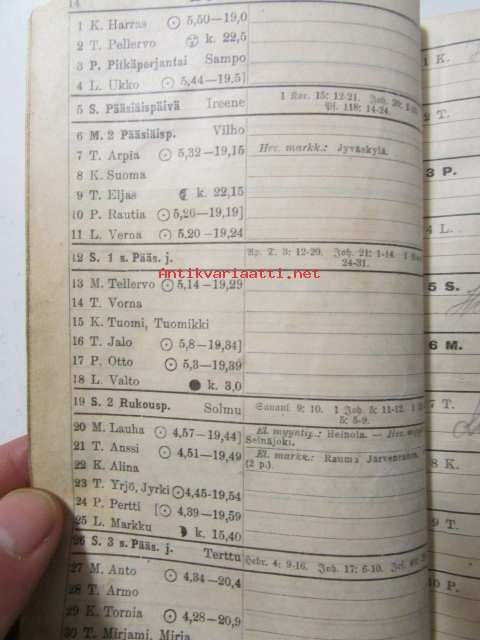 14
1 K. Harras ⊙ 5,50—19,0
2 T. Pellervo k. 22,5
3 P. Pitkäperjantai Sampo
4 L. Ukko ⊙ 5,44—19,5]
5 S. Pääsiäispäivä Ireene 1 Kor. 15: 12-21. Joh. 20: 1-
Ps. 118: 14-24.
6 M. 2 Pääsiäisp. Vilho
7 T. Arpia ⊙ 5,32—19,15 Hev. markk.: Jyväskylä.
8 K. Suoma
9 T. Eljas k. 22,15
10 P. Rautia ⊙ 5,26—19,19]
11 L. Verna ⊙ 5,20—19,24
12 S. 1 s. Pääs. j. Ap. T. 3: 12-20. Joh. 21: 1-14. 1
24-31.
Antikvariaatti.net
13 M. Tellervo ⊙ 5,14—19,29
14 T. Vorna
15 K. Tuomi, Tuomikki
16 T. Jalo ⊙ 5,8—19,34]
17 P. Otto ⊙ 5,3—19,39
18 L. Valto ● k. 3,0
19 S. 2 Rukousp. Solmu Sanani 9: 10. 1 Joh. 5: 11-12. 1
5: 5-9.
20 M. Lauha ⊙ 4,57—19,44] El. myyntip.: Heinola. — Hev.
Seinäjoki.
21 T. Anssi ⊙ 4,51—19,49 El. markk.: Rauma
(2 p.).
22 K. Alina
23 T. Yrjö, Jyrki ⊙ 4,45-19,54
24 P. Pertti [⊙ 4,39—19,59
25 L. Markku k. 15,40
26 S. 3 s. Pääs. j. Terttu Hebr. 4: 9-16. Joh. 17: 6-10.
27 M. Anto ⊙ 4,34—20,4
28 T. Armo
29 K. Tornia ⊙ 4,28—20,9
30 T. Mirjami, Mirja
1 K.
2 T.
3 P.
4 L.
5 S.
6 M.
7 T.
8 K.
9 T.
10 P.